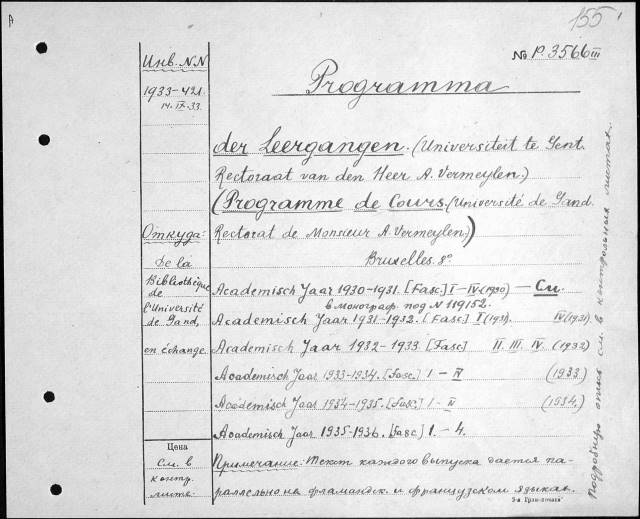 A
155
№ P.3566 III
Инв. N.N
1933-421.
14.IX.33.
Programma
der Leergangen. (Universiteit te Gent.
Rectoraat van den Heer A. Vermeylen.)
(Programme de Cours. (Université de Gand.
Rectorat de Monsieur A. Vermeylen))
Bruxelles. 8°.
Откуда:
De la
Bibliothèque
de
l'Université
de Gand,
en échange.
Academisch Jaar 1930-1931. [Fasc.] I-IV. (1930) — См.
в монограф. под N 119152.
Academisch Jaar 1931-1932. [Fasc.] I (1931). IV (1931).
Academisch Jaar 1932-1933. [Fasc] II. III. IV. (1932)
Academisch Jaar 1933-1934. [Fasc.] I - IV (1933.)
Academisch Jaar 1934-1935. [Fasc.] I - II (1934.)
Academisch Jaar 1935-1936. [Fasc.] 1. - 4.
Цена
См. в
контр.
листе
Примечание: Текст каждого выпуска дается па-
раллельно на фламандск. и французском языках.
Подробную опись см. в контрольных листах.